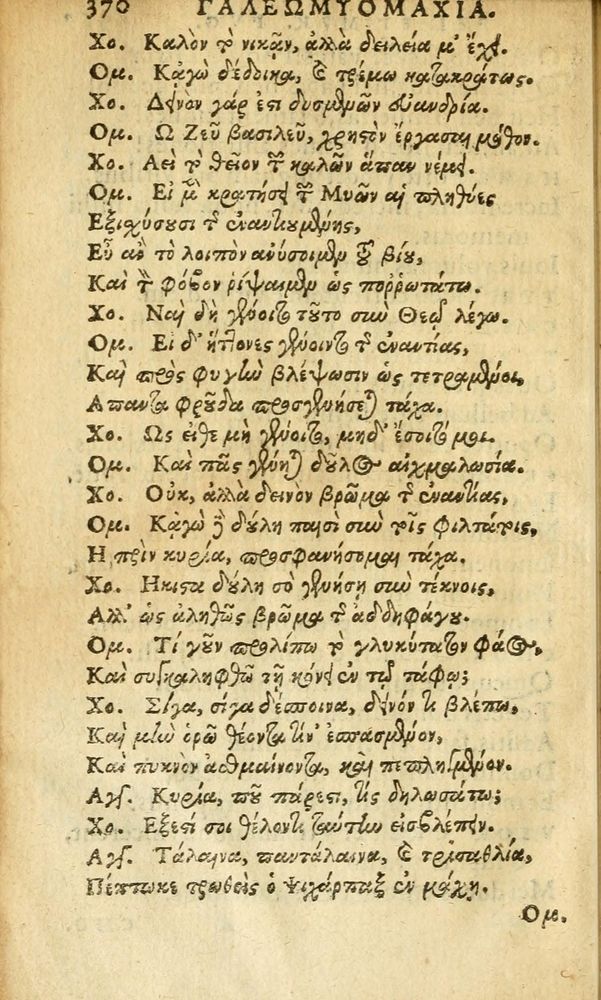 370 ΓΑΛΕΩΜΥΟΜΑΧΙΑ.
Χο. Καλὸν τὸ νικᾶν, ἀλλὰ δειλεία μ' ἔχει.
Ομ. Κᾀγὼ δέδοικα, καὶ τρέμω κατακράτως.
Χο. Δεινὸν γάρ ἐστι δυσμενῶν εὐανδρία.
Ομ. Ω Ζεῦ βασιλεῦ, χρηστὸν ἔργασαι μόθον.
Χο. Αεὶ τὸ θεῖον τῶν καλῶν ἅπαν νέμει.
Ομ. Εἰ μὲν κρατήσει τῶν Μυῶν αἱ πληθύες
Εξισχύσουσι τῆς ἐναντιουμένης,
Εὖ ἂν τὸ λοιπὸν ἀνύσοιμεν τοῦ βίου,
Καὶ τὸν φόβον ῥίψαιμεν ὡς ποῤῥωτάτω.
Χο. Ναὶ δὴ γένοιτο τοῦτο σὺν Θεῷ λέγω.
Ομ. Εἰ δ' ἥττονες γένοιντο τῆς ἐναντίας,
Καὶ πρὸς φυγὴν βλέψωσιν ὡς τετραμμένοι,
Απαντα φροῦδα προσγενήσεται τάχα.
Χο. Ως εἴθε μὴ γένοιτο, μηδ' ἔσοιτό μοι.
Ομ. Καὶ πᾶς γένηται δοῦλος αἰχμαλωσία.
Χο. Οὐκ, ἀλλὰ δεινὸν βρῶμα τῆς ἐναντίας,
Ομ. Κᾀγὼ δὲ δούλη παισὶ σὺν τοῖς φιλτάτοις,
Η πρὶν κυρία, προσφανήσομαι τάχα.
Χο. Ηκιστα δούλη σὸ γενήσῃ σὺν τέκνοις,
Αλλ' ὡς ἀληθῶς βρῶμα τῆς ἀδδηφάγου.
Ομ. Τί γοῦν προλίπω τὸ γλυκύτατον φάος,
Καὶ συγκαληφθῶ τῇ κόνει ἐν τῷ τάφῳ;
Χο. Σίγα, σίγα δέσποινα, δεινόν τι βλέπω,
Καὶ μὴν ὁρῶ θέοντα τιν' ἐσπασμένον,
Καὶ πυκνὸν ἀσθμαίνοντα, καὶ πεπληγμένον.
Αγγ. Κυρία, ποῦ πάρεστι, τίς δηλωσάτω;
Χο. Εξεστί σοι θέλοντι ταύτην εἰσβλέπειν.
Αγγ. Τάλαινα, παντάλαινα, καὶ τρισαθλία,
Πέπτωκε τρωθεὶς ὁ Ψιχάρπαξ ἐν μάχῃ.
Ομ.